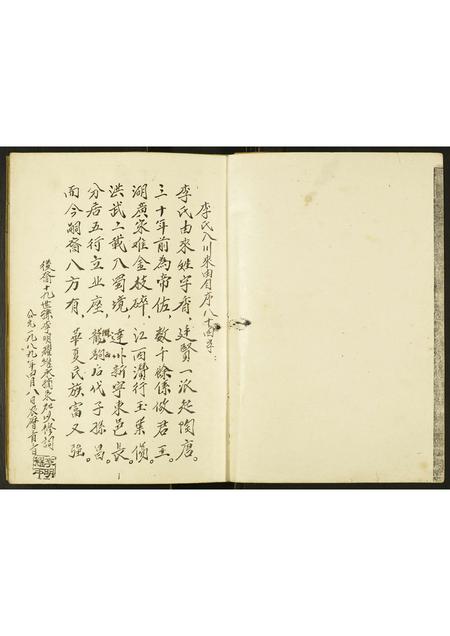 李氏入川來由自序八十四字：
李氏由來姓字香，廷賢一派起陶唐。
三十年前為帝佐，數千餘係做君王。
湖廣家难金枝碎，江西濽行玉葉傾。
洪武二载入蜀境，達川新宁東邑長。
分居五行立业座，龍駒后代子孫昌。
而今嗣裔八方有，華夏民族富又强。
後裔十九世孫李明
公元一九八九年四月八日农曆